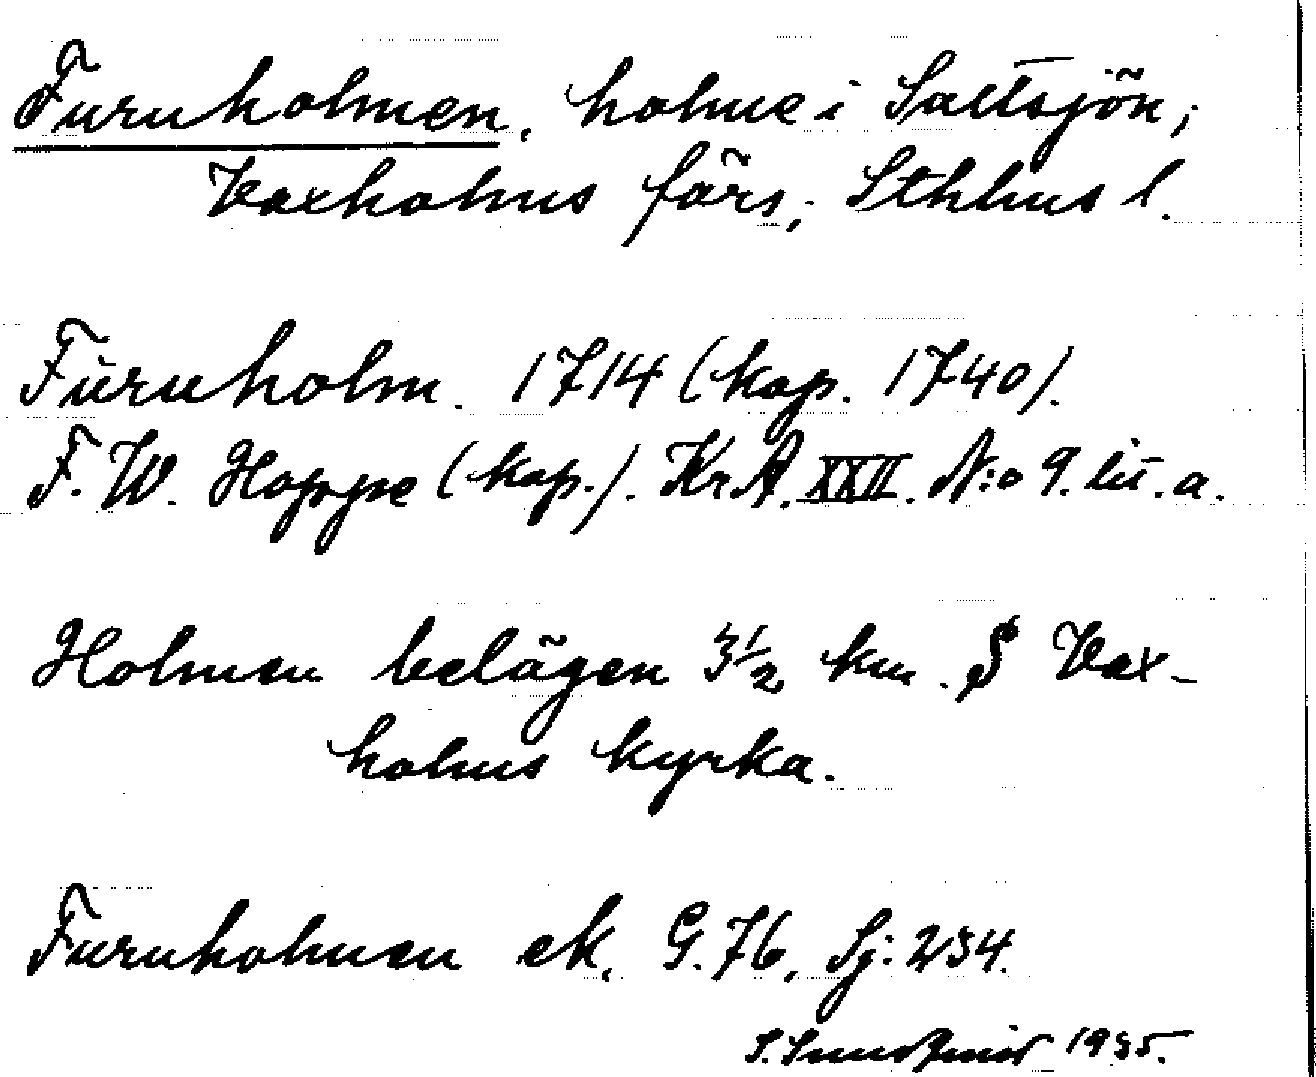 Furuholmen, holme i Saltsjön;
Vaxholms förs, Sthlms l.
Furuholm. 1714 (kop. 1740).
F. W. Hoppe (kop.). KrA. XXII. N:o 9. lit. a.
Holmen belägen 3½ km. S Vax-
holms kyrka.
Furuholmen ek. G. 76, Sj: 234.
S. 1935.